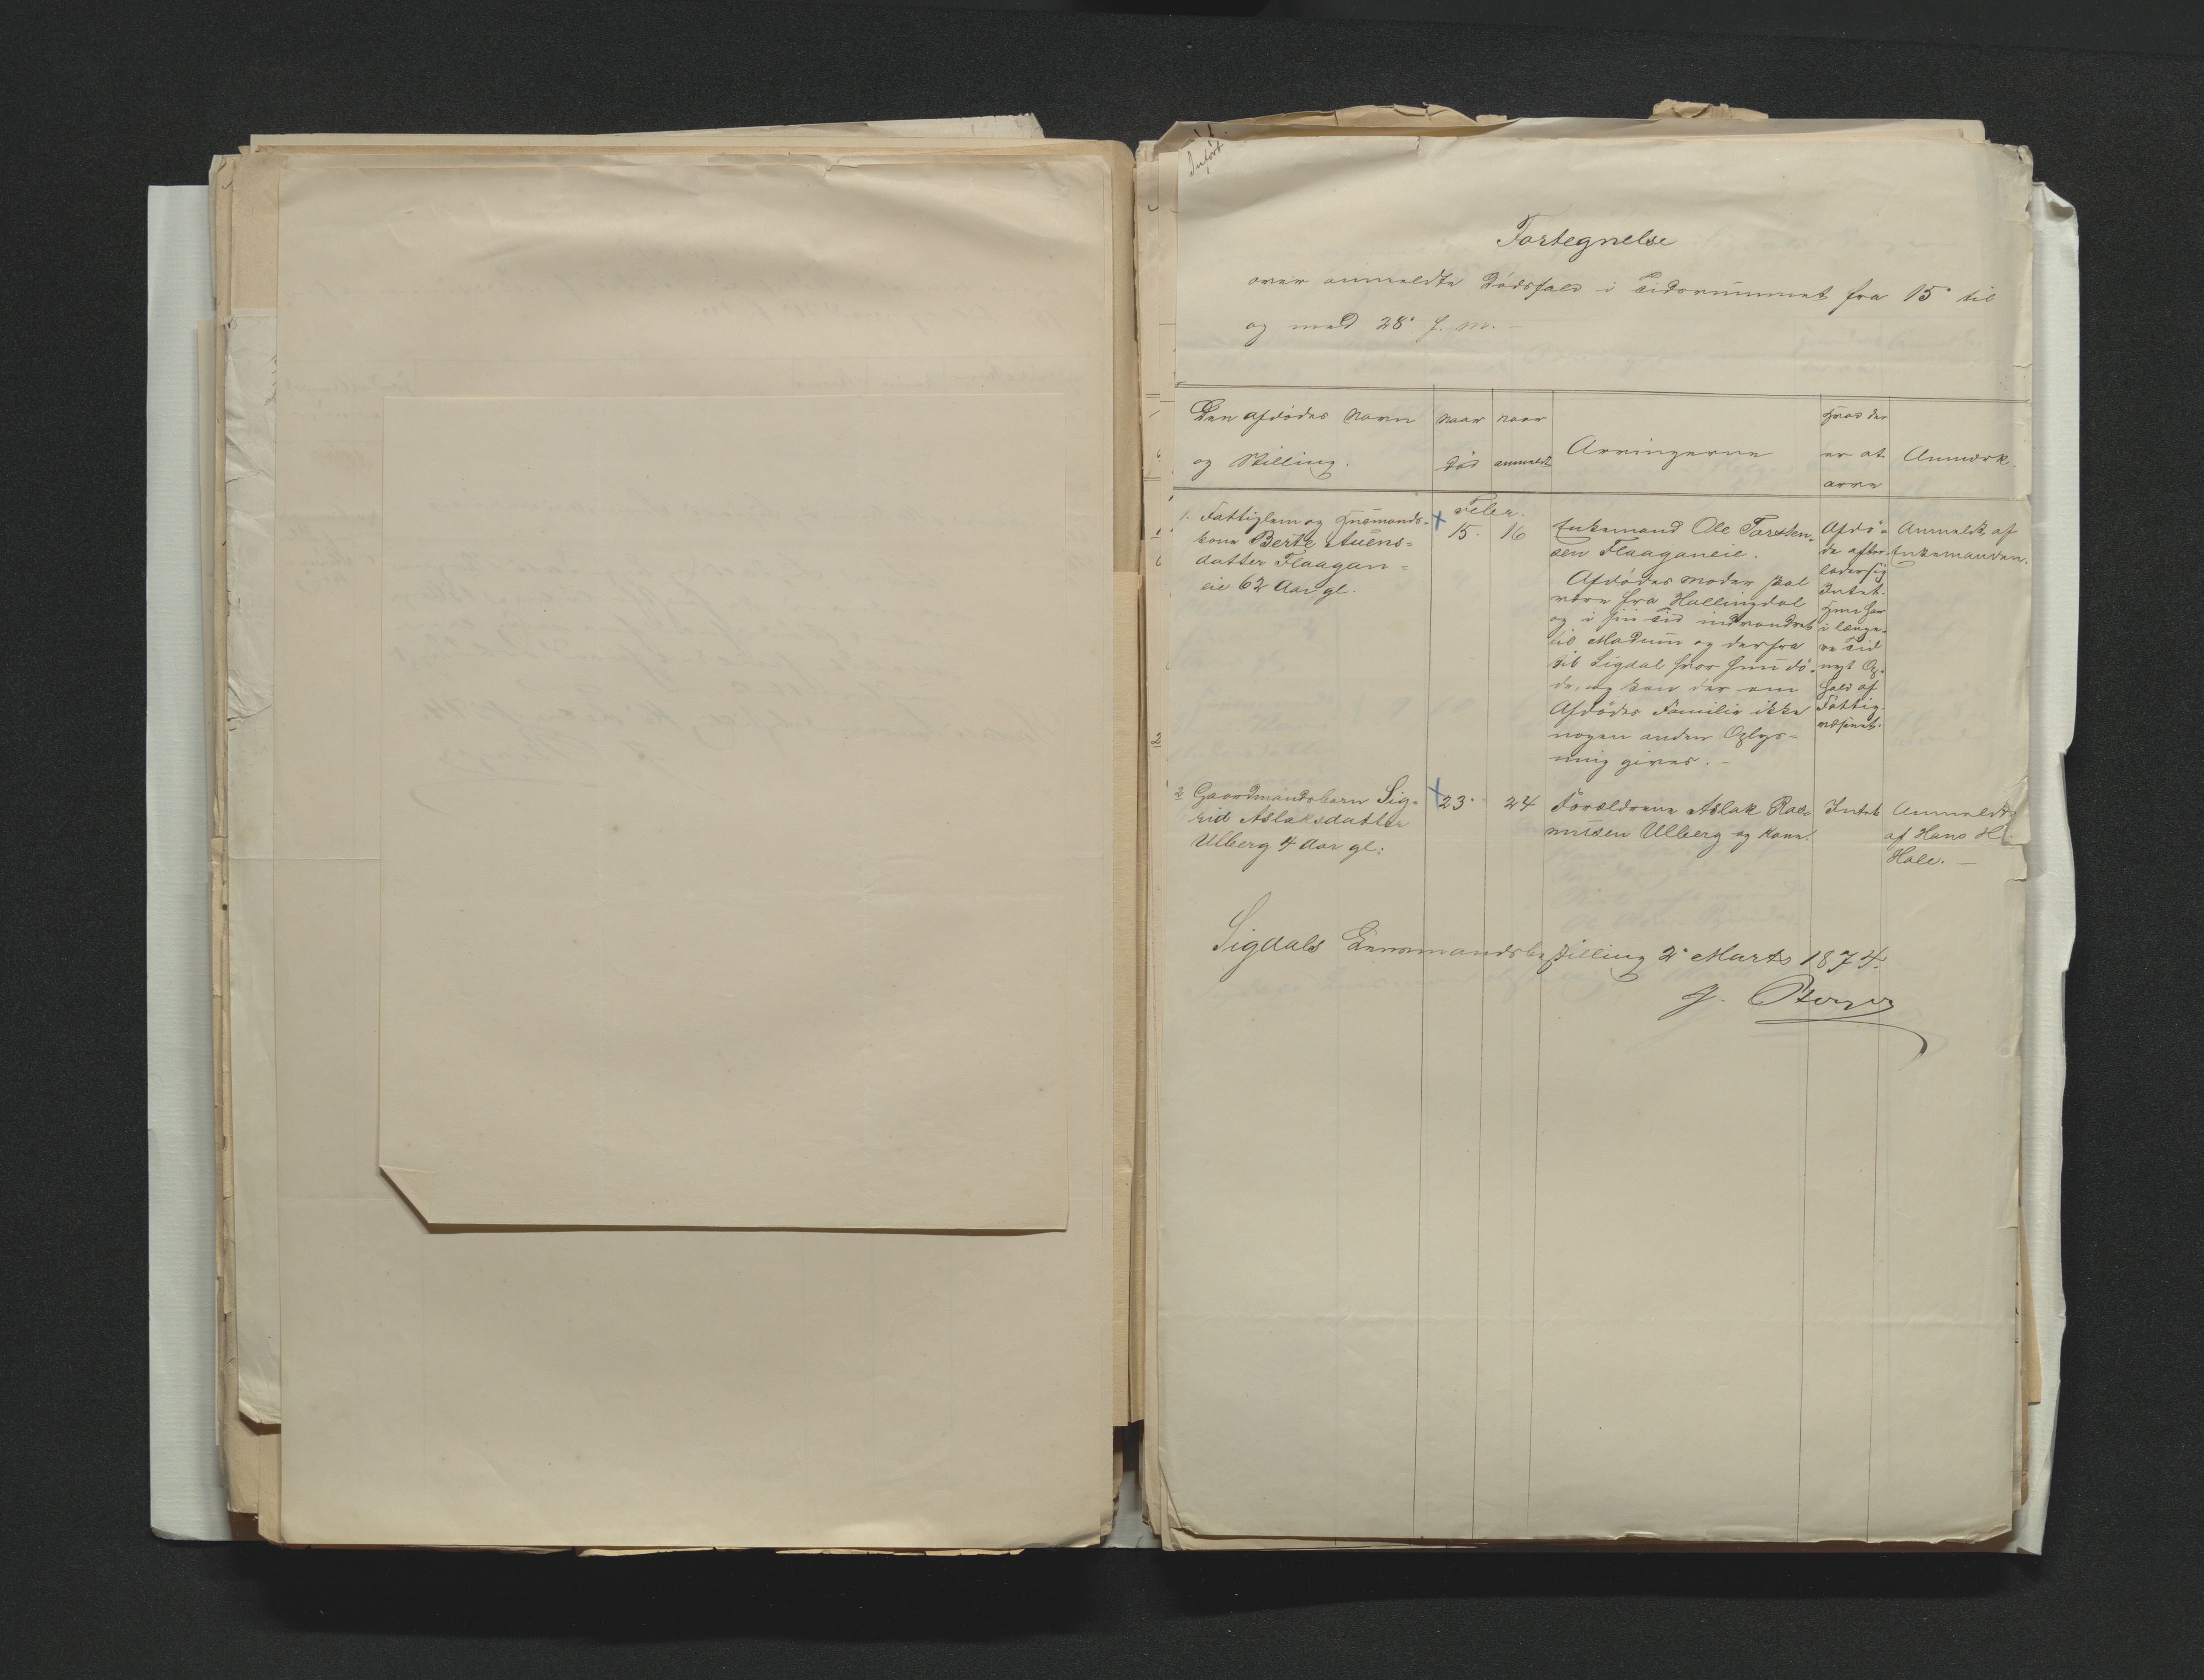 Indført
Fortegnelse
over anmeldte Dødsfald i Tidsrummet fra 15de til
og med 28de f. m. –
Den afdødes Navn
og Stilling.
Naar
død
Naar
anmeldt
Arvingerne
Hvad der
er at
arve
Anmærk.
Febr.
1. Fattiglem og Husmands-
kone Berte Auens=
datter Flaagan=
eie 62 Aar gl.
15.
16
Enkemand Ole Torsten=
sen Flaaganeie.
Afdødes Moder skal
være fra Hallingdal
og i sin Tid indvandret
til Modum og derfra
til Sigdal hvor hun dø=
de, og kan der om
Afdødes Familie ikke
nogen anden Oplys=
ning gives. –
Afdø=
de efter-
lader sig
Intet.
Hun har
i længe-
re Tid
nydt Op-
hold af
Fattig-
væsenet.
Anmeldt af
Enkemanden.
2 Gaardmandsbarn Sig-
rid Aslaksdatter
Ulberg 4 Aar gl:
23.
24
Forældrene Aslak Ras-
musen Ulberg og Kone.
Intet
Anmeldt
af Hans H.
Hole. –
Sigdals Lensmandsbestilling 2de Marts 1874.